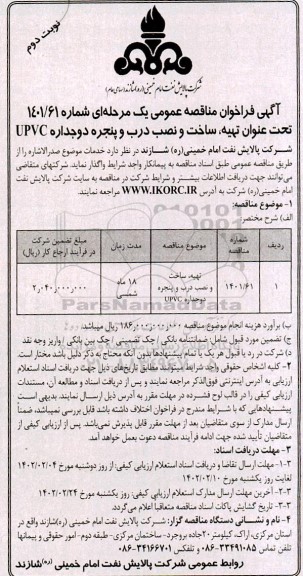 نوبت دوم
شرکت پالایش نفت امام خمینی (ره) شازند (سهامی عام)
آگهی فراخوان مناقصه عمومی یک مرحله‌ای شماره ۱۴۰۱/۶۱
تحت عنوان تهیه، ساخت و نصب درب و پنجره دوجداره UPVC
شرکت پالایش نفت امام خمینی(ره) شازند در نظر دارد خدمات موضوع صدرالاشاره را از
طریق مناقصه عمومی طبق اسناد مناقصه به پیمانکار واجد شرایط واگذار نماید. شرکتهای متقاضی
می‌توانند جهت دریافت اطلاعات بیشتر و شرایط شرکت در مناقصه به سایت شرکت پالایش نفت
امام خمینی(ره) شرکت به آدرس WWW.IKORC.IR مراجعه نمایند.
۱- موضوع مناقصه:
الف) شرح مختصر:
ردیف شماره مناقصه موضوع مناقصه مدت زمان مبلغ تضمین شرکت در فرآیند ارجاع کار (ریال)
۱ ۱۴۰۱/۶۱ تهیه، ساخت و نصب درب و پنجره دوجداره UPVC ۱۸ ماه شمسی ۲٫۰۴۰٫۰۰۰٫۰۰۰
ب) برآورد هزینه انجام موضوع مناقصه ریال میباشد.
ج) تضمین مورد قبول شامل: ضمانتنامه بانکی / چک تضمینی / چک بین بانکی / واریز وجه نقد
د) شرکت در رد یا قبول هر یک یا تمام پیشنهادها بدون آنکه محتاج به ذکر دلیل باشد مختار است.
۲- کلیه اشخاص حقوقی واجد شرایط میتوانند مطابق تاریخ‌های ذیل جهت دریافت اسناد استعلام
ارزیابی به آدرس اینترنتی فوق‌الذکر مراجعه نمایند و پس از دریافت اسناد و مطالعه آن، مستندات
ارزیابی کیفی را در قالب لوح فشرده در مهلت مقرر به آدرس ذیل ارسال نمایند. بدیهی است
پیشنهادهایی که با شرایط مندرج در فراخوان اختلاف داشته باشد قابل بررسی نمیباشد، ضمناً
ارسال مدارک از سوی متقاضیان بعد از مهلت مقرر قابل پذیرش نمی‌باشد. پس از ارزیابی کیفی از
متقاضیان تأیید شده جهت ادامه فرآیند مناقصه دعوت بعمل خواهد آمد.
۳- مهلت دریافت اسناد:
۳-۱- مهلت ارسال تقاضا و دریافت اسناد استعلام ارزیابی کیفی: از روز دوشنبه مورخ ۱۴۰۲/۰۲/۰۴
لغایت روز یکشنبه مورخ ۱۴۰۲/۰۲/۱۰
۳-۲- آخرین مهلت ارسال مدارک استعلام ارزیابی کیفی: روز یکشنبه مورخ ۱۴۰۲/۰۲/۲۴
۳-۳- تاریخ گشایش پاکات اسناد مناقصه متعاقبا اعلام می‌گردد.
۴- نام و نشانی دستگاه مناقصه گزار: شرکت پالایش نفت امام خمینی (ره)شازند واقع در
استان مرکزی، اراک، کیلومتر ۲۰جاده بروجرد- ساختمان مرکزی- طبقه دوم- امور حقوقی و پیمانها
تلفن تماس ۳۳۴۹۱۰۸۵-۰۸۶ و تلفکس ۳۴۱۶۶۷۰۱-۰۸۶
روابط عمومی شرکت پالایش نفت امام خمینی (ره)شازند